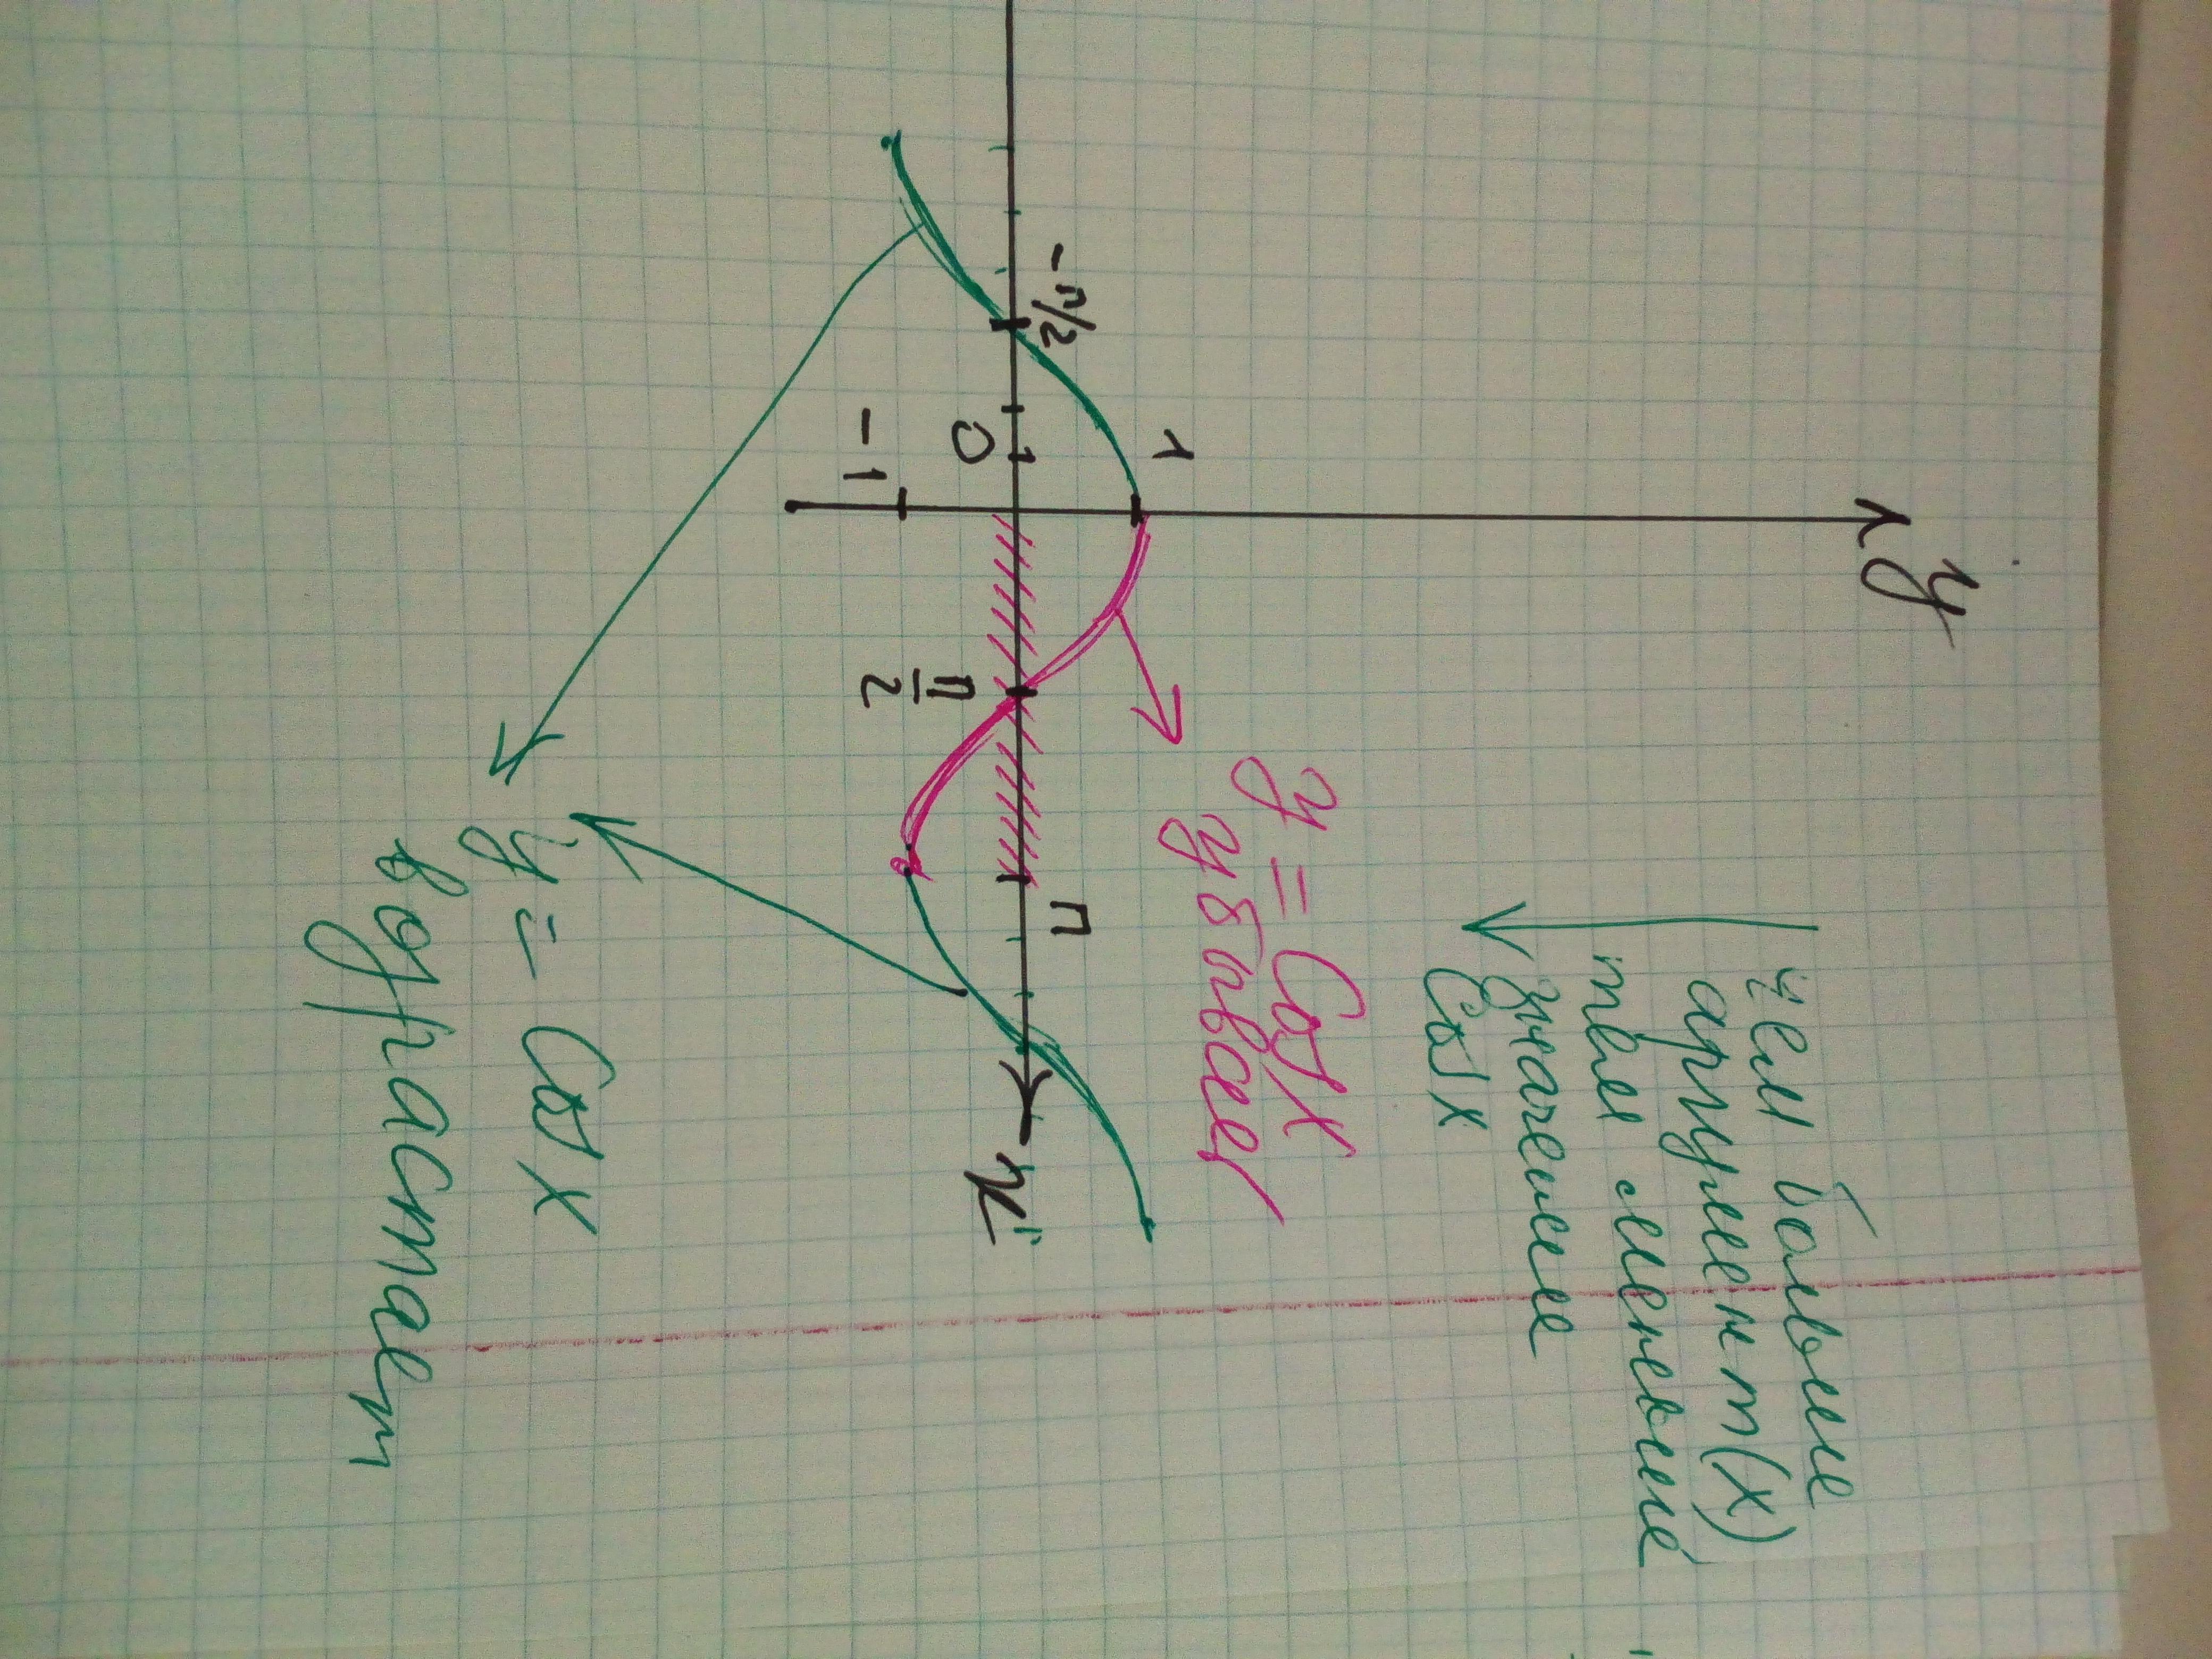 y
чем больше
аргумент (x)
тем меньше
значение
Cos x
y = Cos x
убывает
1
-π/2
π
0
π/2
-1
x
y = Cos x
возрастает